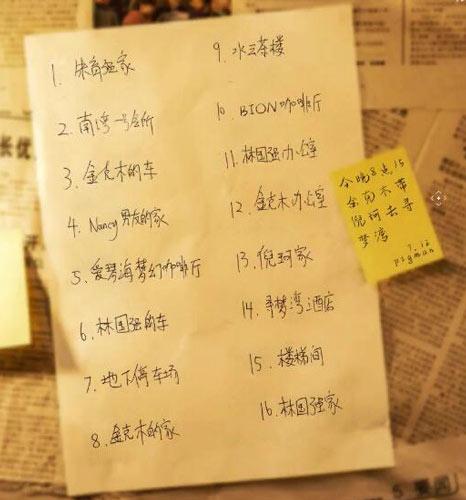 1. 朱俞强家
2. 南湾一号会所
3. 金克木的车
4. Nancy男友的家
5. 爱琴海梦幻咖啡厅
6. 林国强的车
7. 地下停车场
8. 金克木的家
9. 水云茶楼
10. BION咖啡厅
11. 林国强办公室
12. 金克木办公室
13. 倪珂家
14. 寻梦湾酒店
15. 楼梯间
16. 林国强家
今晚8点15
金克木带
倪珂去寻
梦湾
7.12
pigman
长优